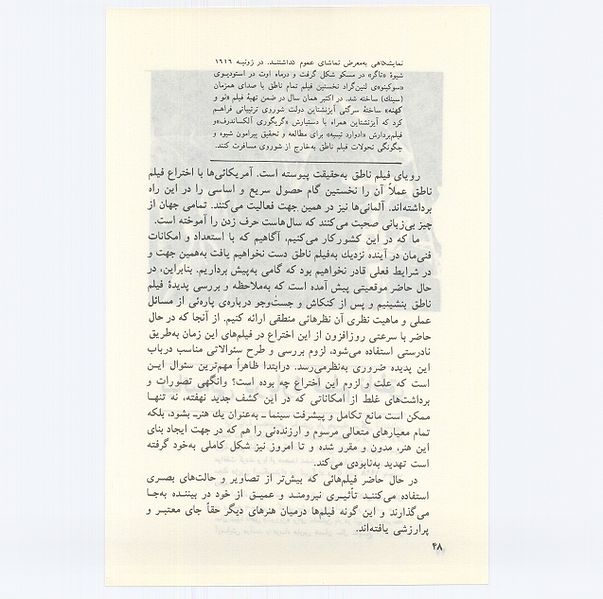 نمایشگاهی به‌معرض تماشای عموم نداشتند. در ژوئیه ۱۹۱۹
شیوهٔ «تاگر» در مسکو شکل گرفت و درماه اوت در استودیوی
«سوکینو»ی لنین‌گراد نخستین فیلم تمام ناطق با صدای همزمان
(سینک) ساخته شد. در اکتبر همان سال در ضمن تهیهٔ فیلم «نو و
کهنه» ساختهٔ سرگئی آیزنشتاین دولت شوروی ترتیباتی فراهم
کرد که آیزنشتاین همراه با دستیارش «گریگوری آلکساندرف» و
فیلم‌بردارش «ادوارد تیسه» برای مطالعه و تحقیق پیرامون شیوه و
چگونگی تحولات فیلم ناطق به‌خارج از شوروی مسافرت کنند.
رویای فیلم ناطق به‌حقیقت پیوسته است. آمریکائی‌ها با اختراع فیلم
ناطق عملاً آن را نخستین گام حصول سریع و اساسی را در این راه
برداشته‌اند. آلمانی‌ها نیز در همین جهت فعالیت می‌کنند. تمامی جهان از
چیز بی‌زبانی صحبت می‌کنند که سال‌هاست حرف زدن را آموخته است.
ما که در این کشور کار می‌کنیم، آگاهیم که با استعداد و امکانات
فنی‌مان در آینده نزدیك به‌فیلم ناطق دست نخواهیم یافت به‌همین جهت و
در شرایط فعلی قادر نخواهیم بود که گامی به‌پیش برداریم. بنابراین، در
حال حاضر موقعیتی پیش آمده است که به‌ملاحظه و بررسی پدیدهٔ فیلم
ناطق بنشینیم و پس از کنکاش و جست‌وجو درباره‌ی پاره‌ئی از مسائل
عملی و ماهیت نظری آن نظرهائی منطقی ارائه کنیم. از آنجا که در حال
حاضر با سرعتی روزافزون از این اختراع در فیلم‌های این زمان به‌طریق
نادرستی استفاده می‌شود، لزوم بررسی و طرح سئوالاتی مناسب درباب
این پدیده ضروری به‌نظرمی‌رسد. درابتدا ظاهراً مهم‌ترین سئوال این
است که علت و لزوم این اختراع چه بوده است؟ وانگهی تصورات و
برداشت‌های غلط از امکاناتی که در این کشف جدید نهفته، نه تنها
ممکن است مانع تکامل و پیشرفت سینما ـ به‌عنوان یك هنرـ بشود، بلکه
تمام معیارهای متعالی مرسوم و ارزنده‌ئی را هم که در جهت ایجاد بنای
این هنر، مدون و مقرر شده و تا امروز نیز شکل کاملی به‌خود گرفته
است تهدید به‌نابودی می‌کند.
در حال حاضر فیلم‌هائی که بیش‌تر از تصاویر و حالت‌های بصری
استفاده می‌کنند تأثیری نیرومند و عمیق از خود در بیننده به‌جا
می‌گذارند و این گونه فیلم‌ها درمیان هنرهای دیگر حقاً جای معتبر و
پرارزشی یافته‌اند.
۴۸